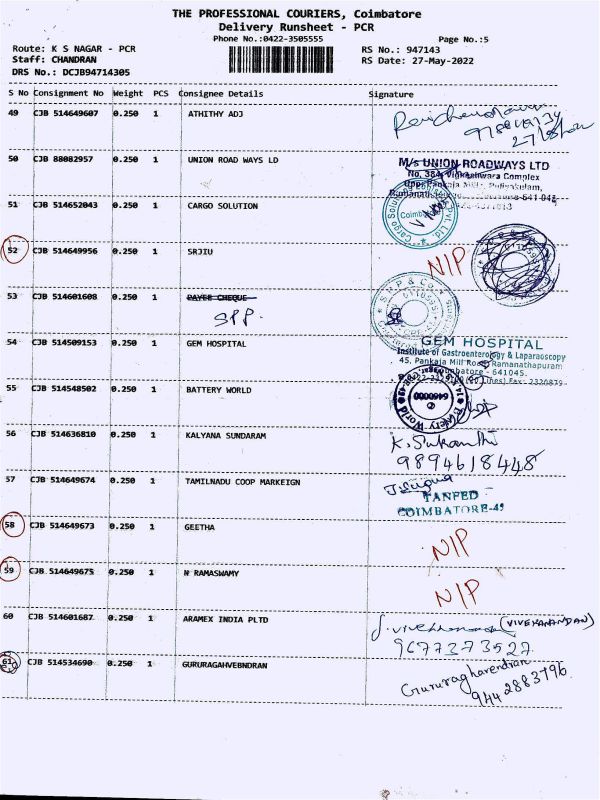 THE PROFESSIONAL COURIERS, Coimbatore
Delivery Runsheet - PCR
Phone No.:0422-3505555 Page No.:5
Route: K S NAGAR - PCR RS No.: 947143
Staff: CHANDRAN RS Date: 27-May-2022
DRS No.: DCJB94714305
S No Consignment No Weight PCS Consignee Details Signature
49 CJB 514649607 0.250 1 ATHITHY ADJ
50 CJB 88082957 0.250 1 UNION ROAD WAYS LD
M/s UNION ROADWAYS LTD
No. 384, Vigneshwara Complex
51 CJB 514652043 0.250 1 CARGO SOLUTION
52 CJB 514649956 0.250 1 SRJIU NIP
53 CJB 514601608 0.250 1 PAYEE CHEQUE
SPP.
54 CJB 514509153 0.250 1 GEM HOSPITAL
GEM HOSPITAL
Institute of Gastroenterology & Laparaoscopy
45, Pankaja Mill Road, Ramanathapuram
Coimbatore - 641045.
55 CJB 514548502 0.250 1 BATTERY WORLD
56 CJB 514636810 0.250 1 KALYANA SUNDARAM K. Sukanthi
9894618448
57 CJB 514649674 0.250 1 TAMILNADU COOP MARKEIGN
TANFED
COIMBATORE-45
58 CJB 514649673 0.250 1 GEETHA NIP
59 CJB 514649675 0.250 1 N RAMASWAMY NIP
60 CJB 514601687 0.250 1 ARAMEX INDIA PLTD (VIVEKANANDAN)
9677373527
61 CJB 514534690 0.250 1 GURURAGAHVEBNDRAN Gururagharendran
9442883796